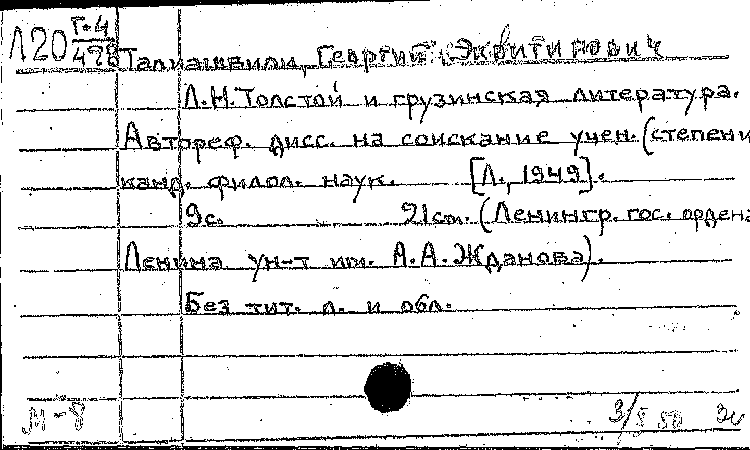 Л20 Г-4
478 Талиашвили, Георгий Эквитимович
Л.Н.Толстой и грузинская литература.
Автореф. дисс. на соискание учен. (степени
канд. филол. наук. [Л., 1949].
9с. 21см. (Ленингр. гос. ордена
Ленина ун-т им. А.А.Жданова).
Без тит. л. и обл.
М-8 3/5 50